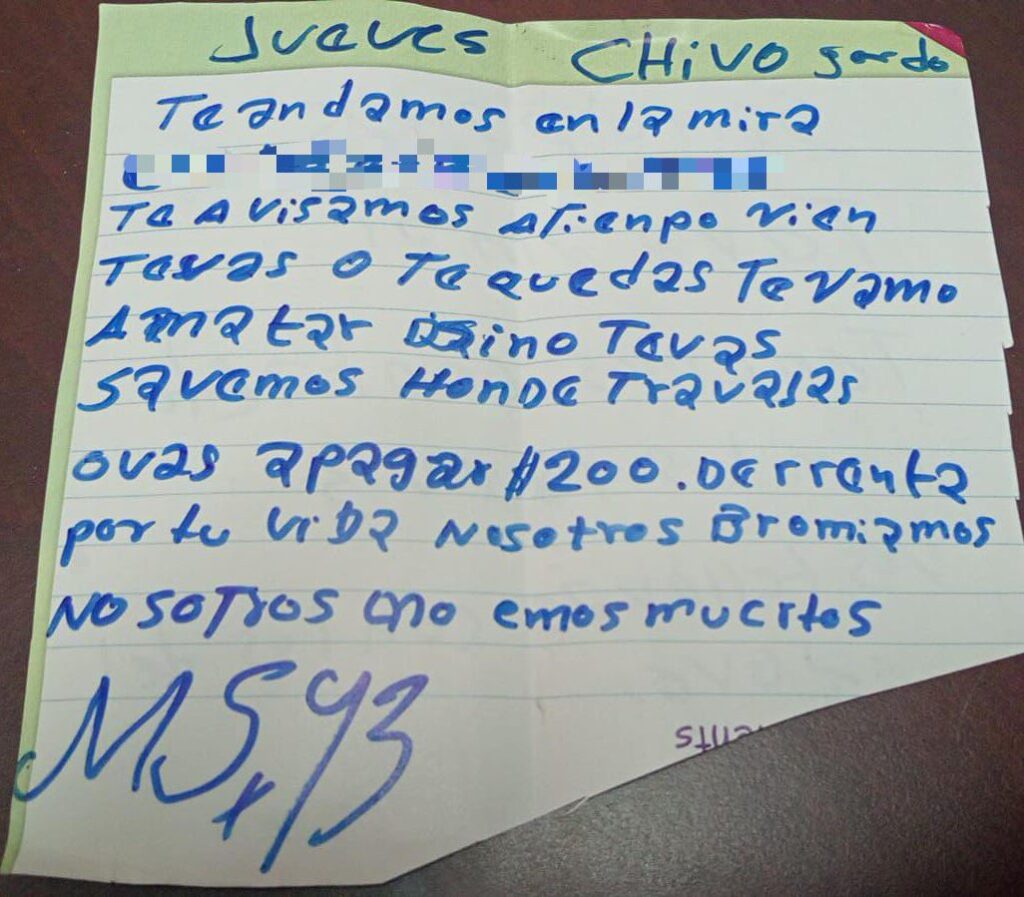 Jueves CHiVO gordo
Te andamos en la mira
Te Avisamos ATienpo vien
Tevas o Te quedas Te vamo
Amatar sino Tevas
savemos HonDe Travajas
ovas apagar $200. De rrenta
por tu ViDa Nosotros Bromiamos
NosoTros no emos muertos
MS X 93
ents